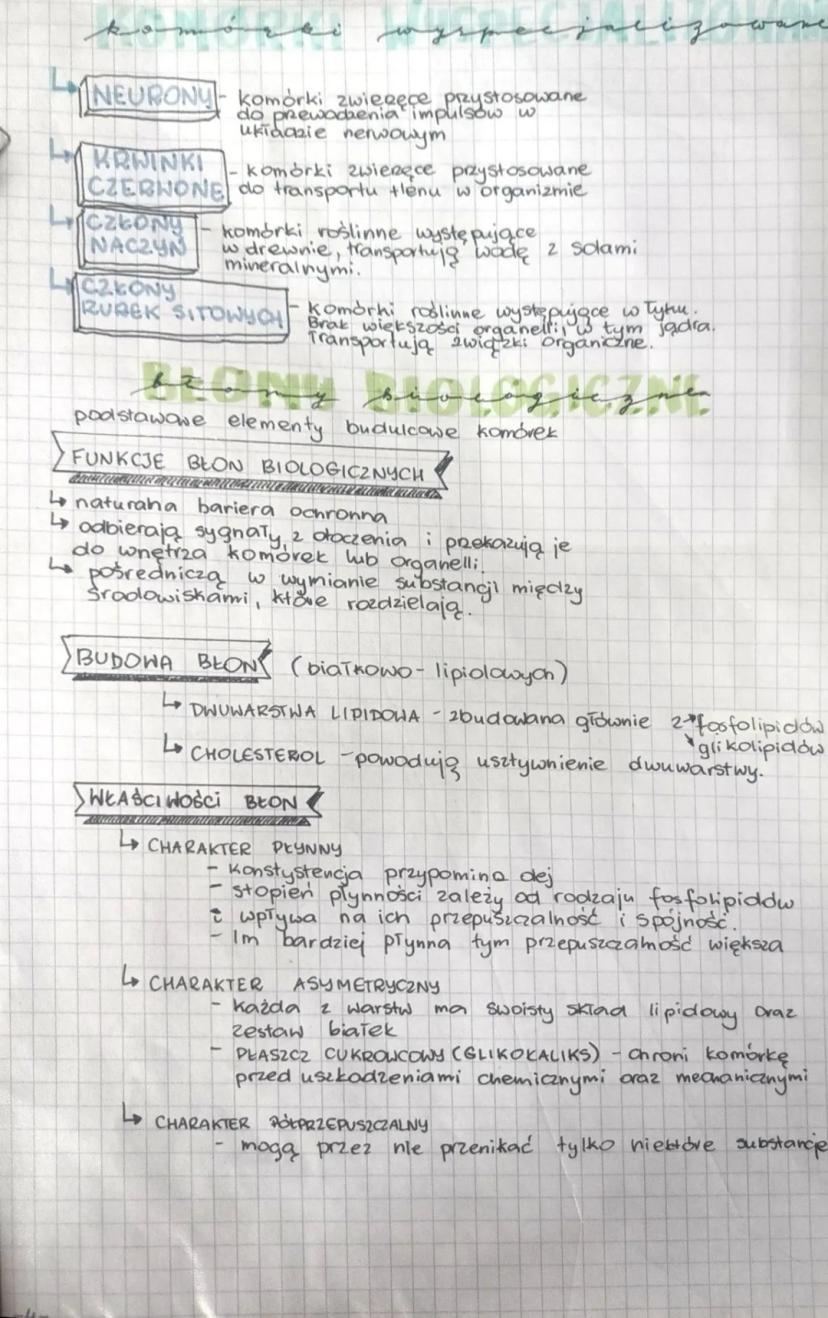 komórki wyspecjalizowane
NEURONY - komórki zwierzęce przystosowane
do przewodzenia impulsów w
układzie nerwowym
KRWINKI
CZERWONE - komórki zwierzęce przystosowane
do transportu tlenu w organizmie
CZŁONY
NACZYŃ - komórki roślinne występujące
w drewnie, transportują wodę z solami
mineralnymi.
CZŁONY
RUREK SITOWYCH - komórki roślinne występujące w łyku.
Brak większości organelli, w tym jądra.
Transportują związki organiczne.
błony biologiczne
podstawowe elementy budulcowe komórek
FUNKCJE BŁON BIOLOGICZNYCH
↳ naturalna bariera ochronna
↳ odbierają sygnały z otoczenia i przekazują je
do wnętrza komórek lub organelli.
↳ pośredniczą w wymianie substancji między
środowiskami, które rozdzielają.
BUDOWA BŁON (białkowo-lipidowych)
↳ DWUWARSTWA LIPIDOWA - zbudowana głównie z → fosfolipidów
↘ glikolipidów
↳ CHOLESTEROL - powodują usztywnienie dwuwarstwy.
WŁAŚCIWOŚCI BŁON
↳ CHARAKTER PŁYNNY
- Konstystencja przypomina olej
- stopień płynności zależy od rodzaju fosfolipidów
i wpływa na ich przepuszczalność i spójność.
- Im bardziej płynna tym przepuszczalność większa
↳ CHARAKTER ASYMETRYCZNY
- każda z warstw ma swoisty skład lipidowy oraz
zestaw białek
- PŁASZCZ CUKROWCOWY (GLIKOKALIKS) - chroni komórkę
przed uszkodzeniami chemicznymi oraz mechanicznymi
↳ CHARAKTER PÓŁPRZEPUSZCZALNY
- mogą przez nie przenikać tylko niektóre substancje